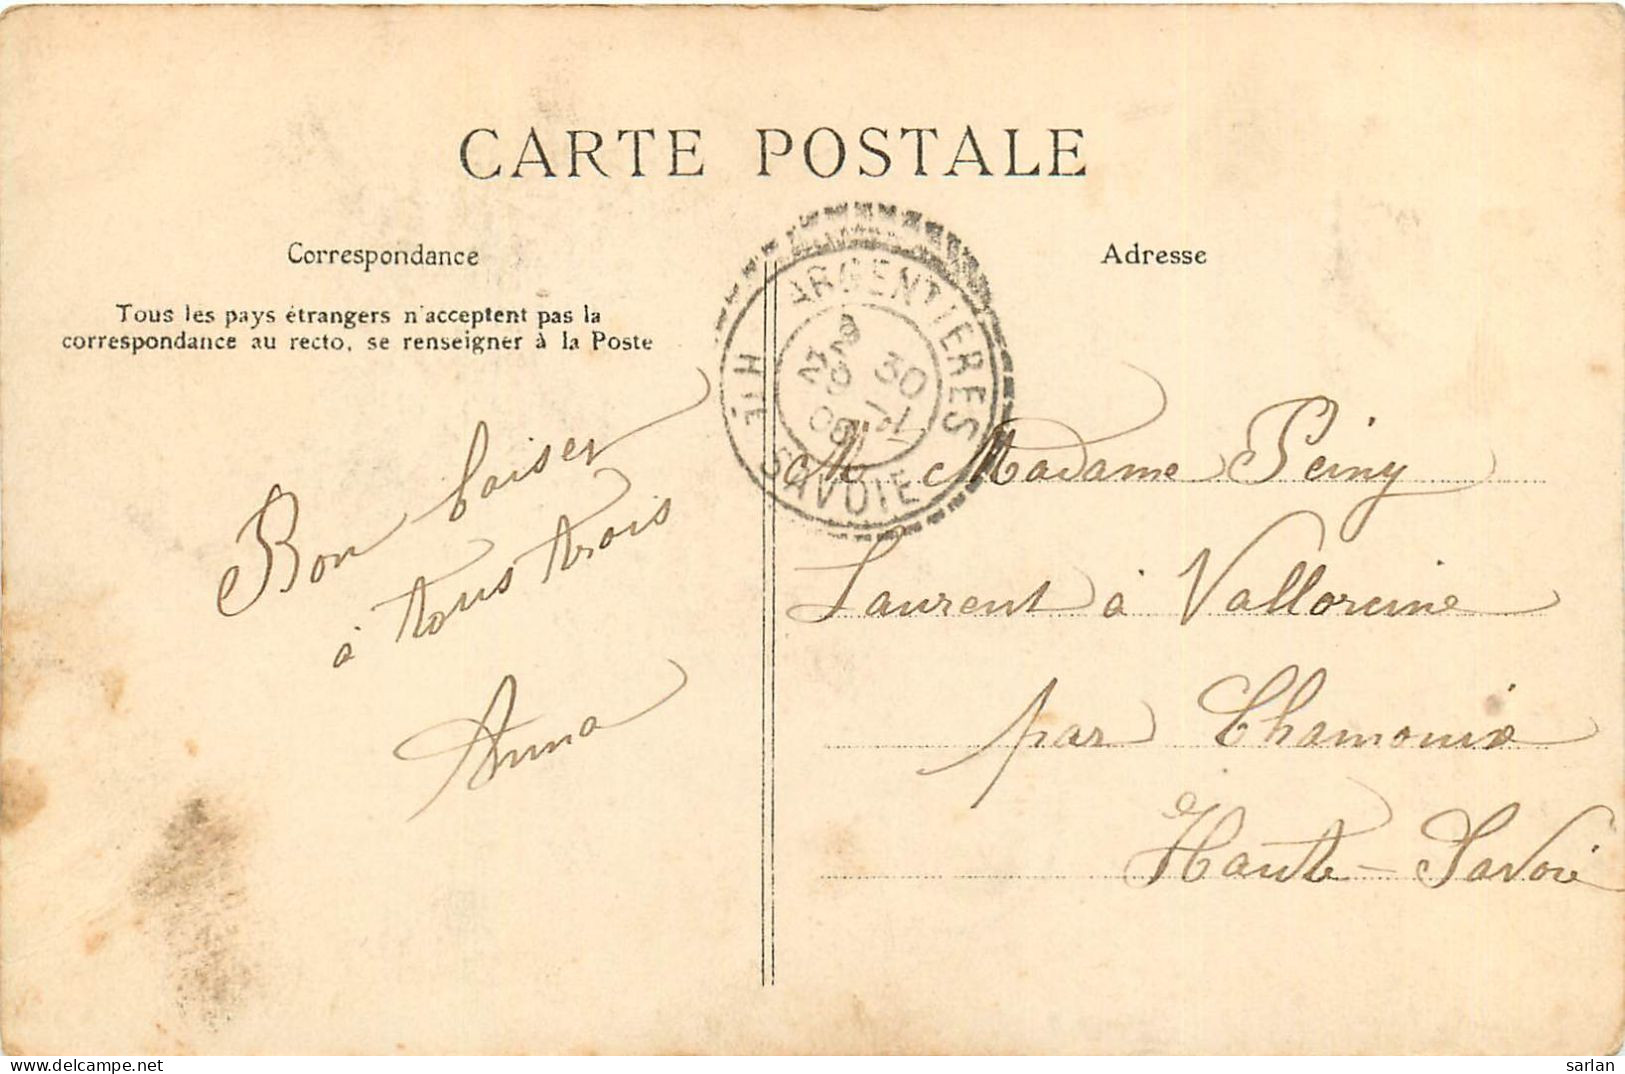 CARTE POSTALE
Correspondance
Tous les pays étrangers n'acceptent pas la
correspondance au recto, se renseigner à la Poste
Bon baiser
à tous trois
Anna
ARGENTIERES
30
HTE SAVOIE
Adresse
Madame Peiny
Laurent à Vallorcine
par Chamonix
Haute-Savoie
sarlan